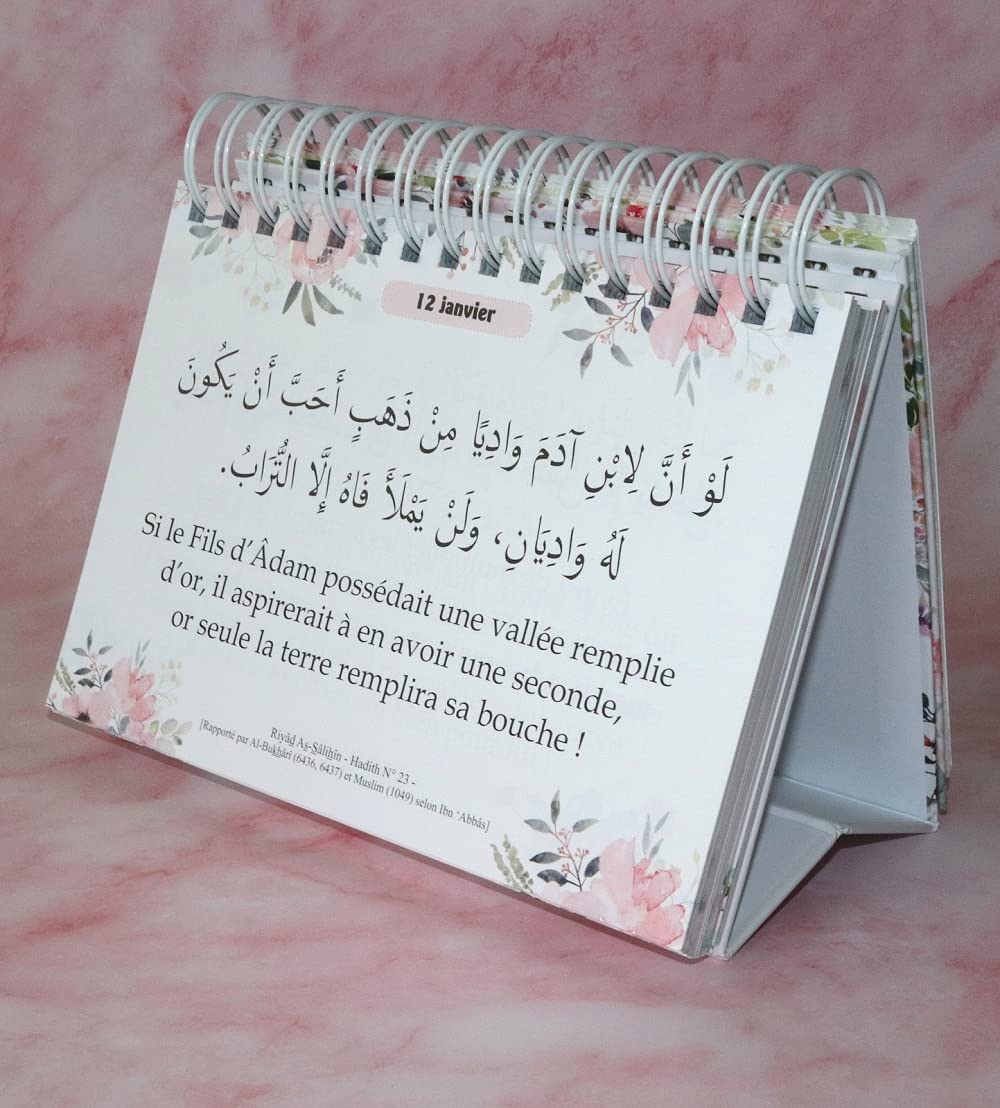 12 janvier
لَوْ أَنَّ لِابْنِ آدَمَ وَادِيًا مِنْ ذَهَبٍ أَحَبَّ أَنْ يَكُونَ
لَهُ وَادِيَانِ، وَلَنْ يَمْلَأَ فَاهُ إِلَّا التُّرَابُ.
Si le Fils d’Âdam possédait une vallée remplie
d’or, il aspirerait à en avoir une seconde,
or seule la terre remplira sa bouche !
Riyâd As-Sâlihîn - Hadith N° 23 -
[Rapporté par Al-Bukhârî (6436, 6437) et Muslim (1049) selon Ibn ‘Abbâs]